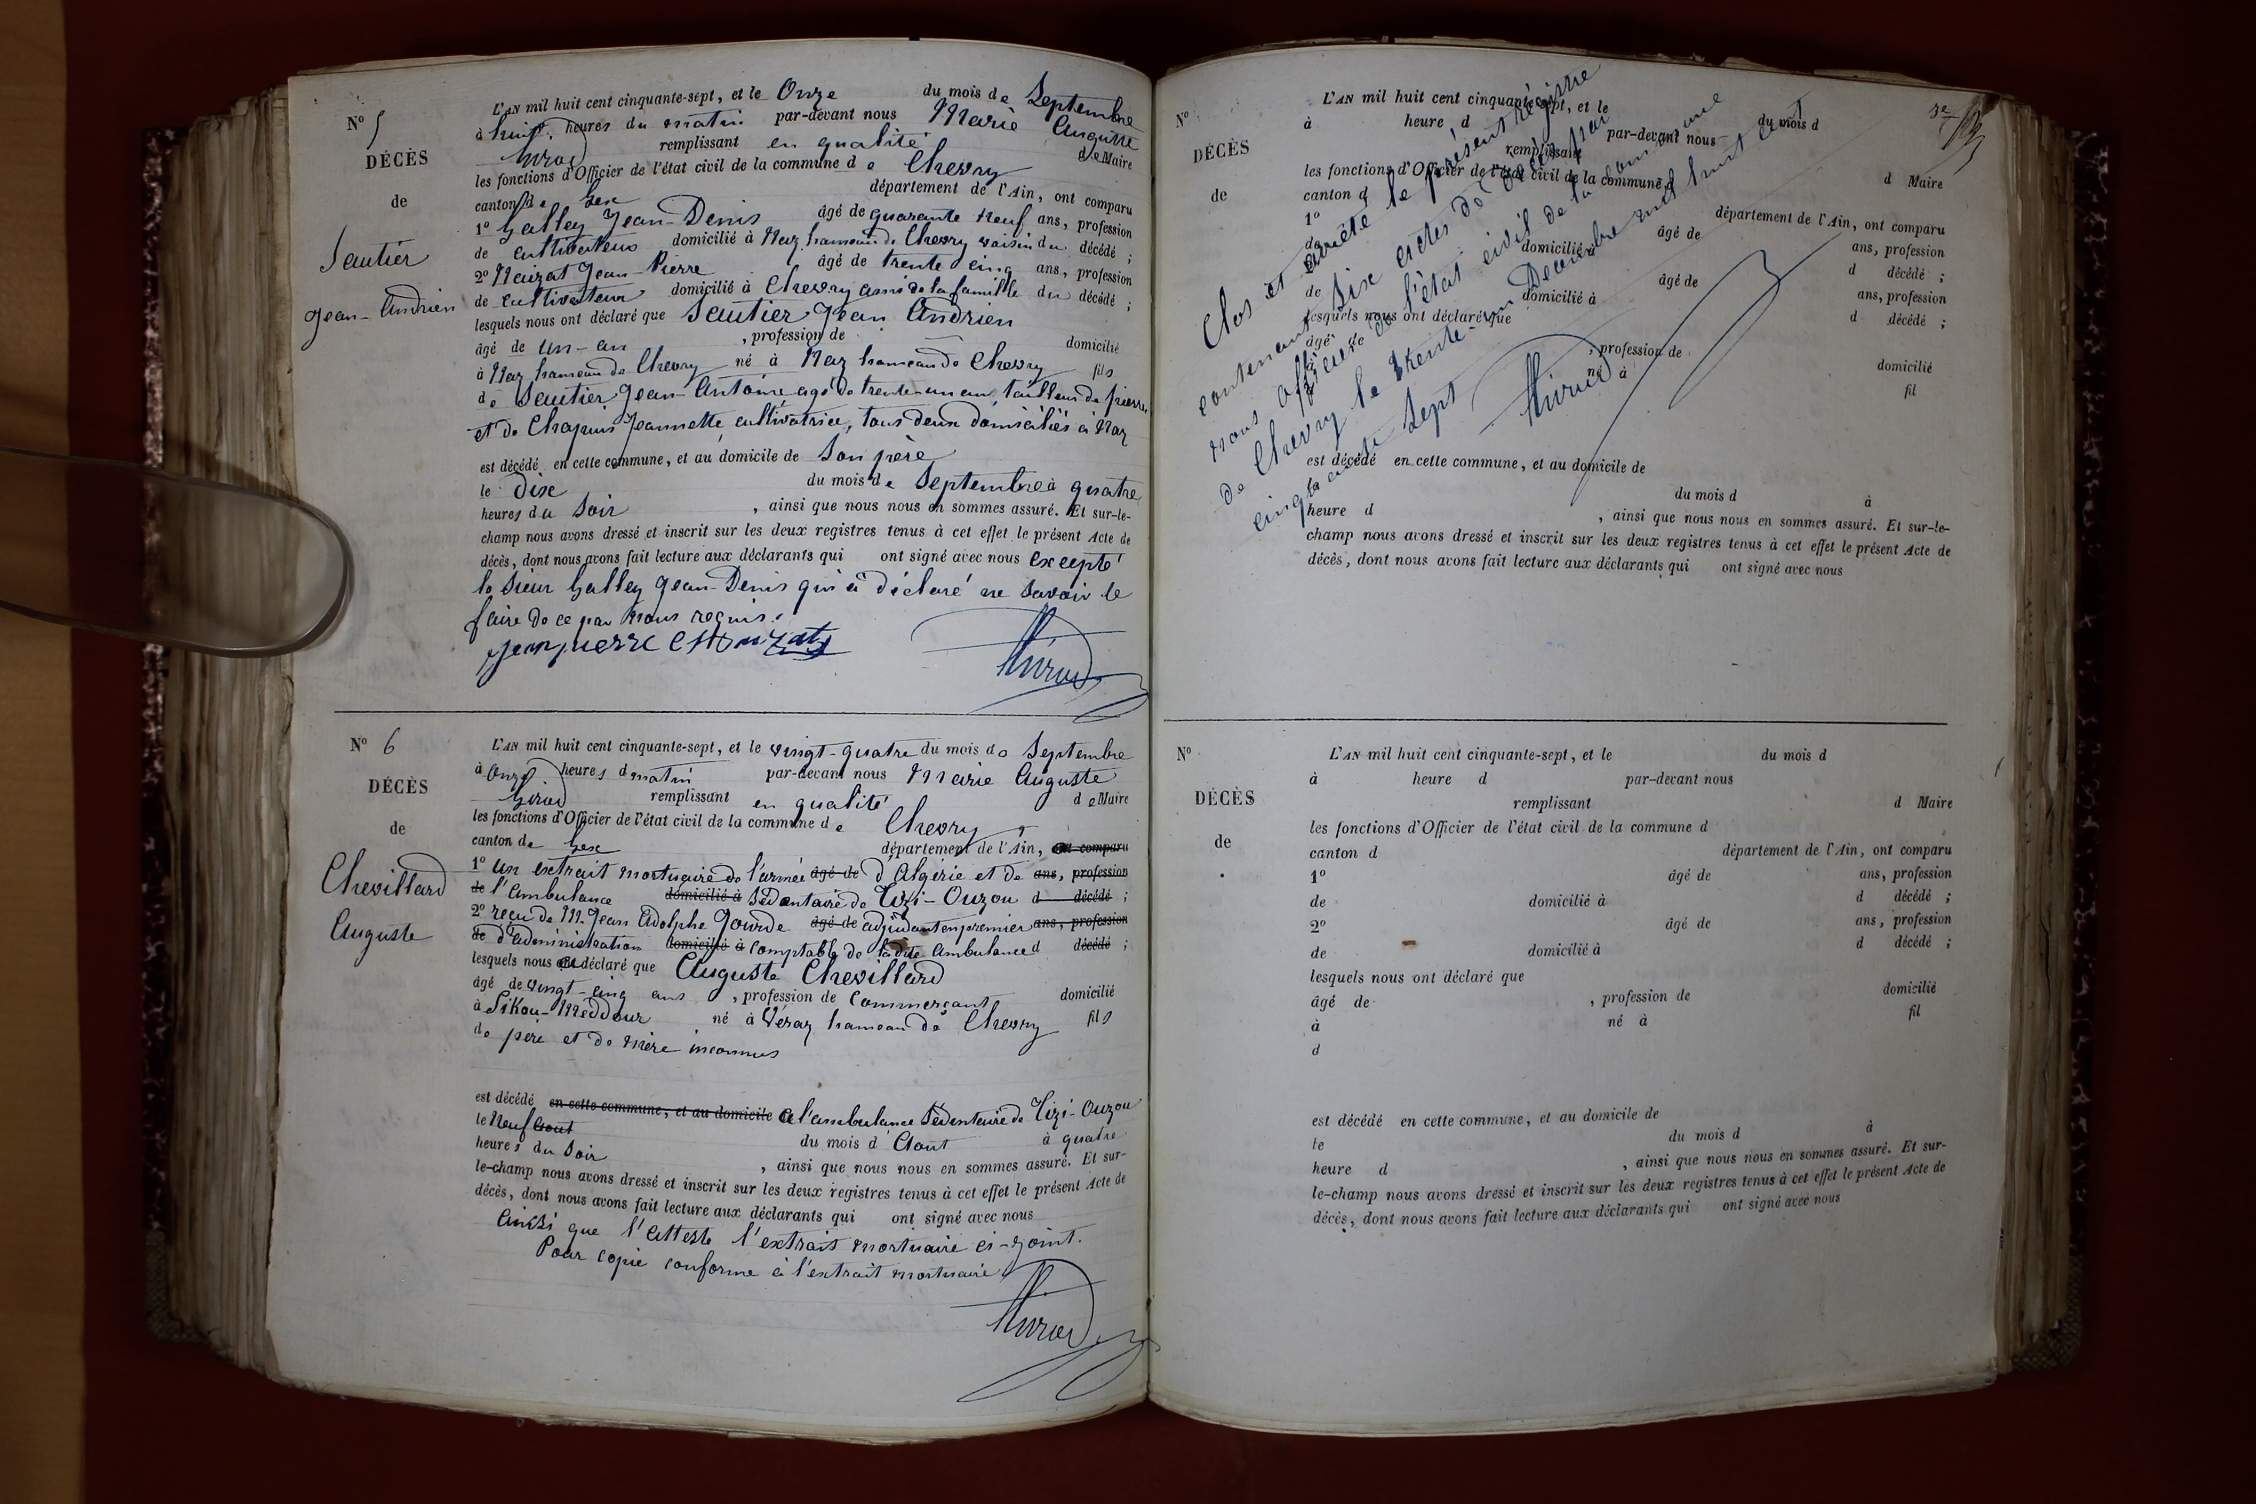 N° 5
DÉCÈS
de
Sautier
Jean-Andrien
L'AN mil huit cent cinquante-sept, et le Onze du mois de Septembre
à huit heures du matin par-devant nous Marie Auguste
Girod remplissant en qualité de Maire
les fonctions d'Officier de l'état civil de la commune de Chevry
canton de Gex département de l'Ain, ont comparu
1° Galley Jean-Denis âgé de quarante neuf ans, profession
de cultivateur domicilié à Naz hameau de Chevry voisin du décédé ;
2° Maizat Jean-Pierre âgé de trente cinq ans, profession
de cultivateur domicilié à Chevry ami de la famille du décédé ;
lesquels nous ont déclaré que Sautier Jean Andrien
âgé de un-an , profession de — domicilié
à Naz hameau de Chevry né à Naz hameau de Chevry fils
de Sautier Jean-Antoine agé de trente-un ans, tailleur de pierres,
et de Chapuis Jeannette, cultivatrice, tous deux domiciliés à Naz
est décédé en cette commune, et au domicile de son père
le dix du mois de Septembre à quatre
heures du soir , ainsi que nous nous en sommes assuré. Et sur-le-
champ nous avons dressé et inscrit sur les deux registres tenus à cet effet le présent Acte de
décès, dont nous avons fait lecture aux déclarants qui ont signé avec nous excepté
le sieur Galley Jean-Denis qui à déclaré ne savoir le
faire de ce par nous requis.
jean pierre
Girod
N° 6
DÉCÈS
de
Chevillard
Auguste
L'AN mil huit cent cinquante-sept, et le vingt-quatre du mois de Septembre
à onze heures d matin par-devant nous Marie Auguste
Girod remplissant en qualité de Maire
les fonctions d'Officier de l'état civil de la commune de Chevry
canton de Gex département de l'Ain, ont comparu
1° un extrait mortuaire de l'armée âgé de d'Algérie et de ans, profession
de l'ambulance domicilié à sédentaire de Tizi-Ouzou d décédé ;
2° reçu de M. Jean Adolphe Gourde âgé de adjudant en premier ans, profession
de d'administration domicilié à comptable de ladite ambulance d décédé ;
lesquels nous ont déclaré que Auguste Chevillard
âgé de vingt-cinq ans , profession de commerçant domicilié
à Sikou-Meddour né à Véraz hameau de Chevry fils
de père et de mère inconnus
est décédé en cette commune, et au domicile à l'ambulance sédentaire de Tizi-Ouzou
le neuf aout du mois d'Aout à quatre
heures du soir , ainsi que nous nous en sommes assuré. Et sur-
le-champ nous avons dressé et inscrit sur les deux registres tenus à cet effet le présent Acte de
décès, dont nous avons fait lecture aux déclarants qui ont signé avec nous
ainsi que l'atteste l'extrait mortuaire ci-joint.
Pour copie conforme à l'extrait mortuaire
Girod
N°
DÉCÈS
de
L'AN mil huit cent cinquante-sept, et le du mois d
à heure d par-devant nous
remplissant d Maire
les fonctions d'Officier de l'état civil de la commune d
canton d département de l'Ain, ont comparu
1° âgé de ans, profession
de domicilié à d décédé ;
âgé de ans, profession
de domicilié à d décédé ;
lesquels nous ont déclaré que
âgé de , profession de domicilié
né à fil
est décédé en cette commune, et au domicile de
du mois d à
heure d , ainsi que nous nous en sommes assuré. Et sur-le-
champ nous avons dressé et inscrit sur les deux registres tenus à cet effet le présent Acte de
décès, dont nous avons fait lecture aux déclarants qui ont signé avec nous
Clos et arrêté le présent régistre
contenant six actes de décès par
nous officier de l'état civil de la commune
de Chevry le trente-un Decembre mil huit cent
cinquante sept
Girod
N°
DÉCÈS
de
L'AN mil huit cent cinquante-sept, et le du mois d
à heure d par-devant nous
remplissant d Maire
les fonctions d'Officier de l'état civil de la commune d
canton d département de l'Ain, ont comparu
1° âgé de ans, profession
de domicilié à d décédé ;
2° âgé de ans, profession
de domicilié à d décédé ;
lesquels nous ont déclaré que
âgé de , profession de domicilié
à né à fil
d
est décédé en cette commune, et au domicile de
le du mois d à
heure d , ainsi que nous nous en sommes assuré. Et sur-
le-champ nous avons dressé et inscrit sur les deux registres tenus à cet effet le présent Acte de
décès, dont nous avons fait lecture aux déclarants qui ont signé avec nous